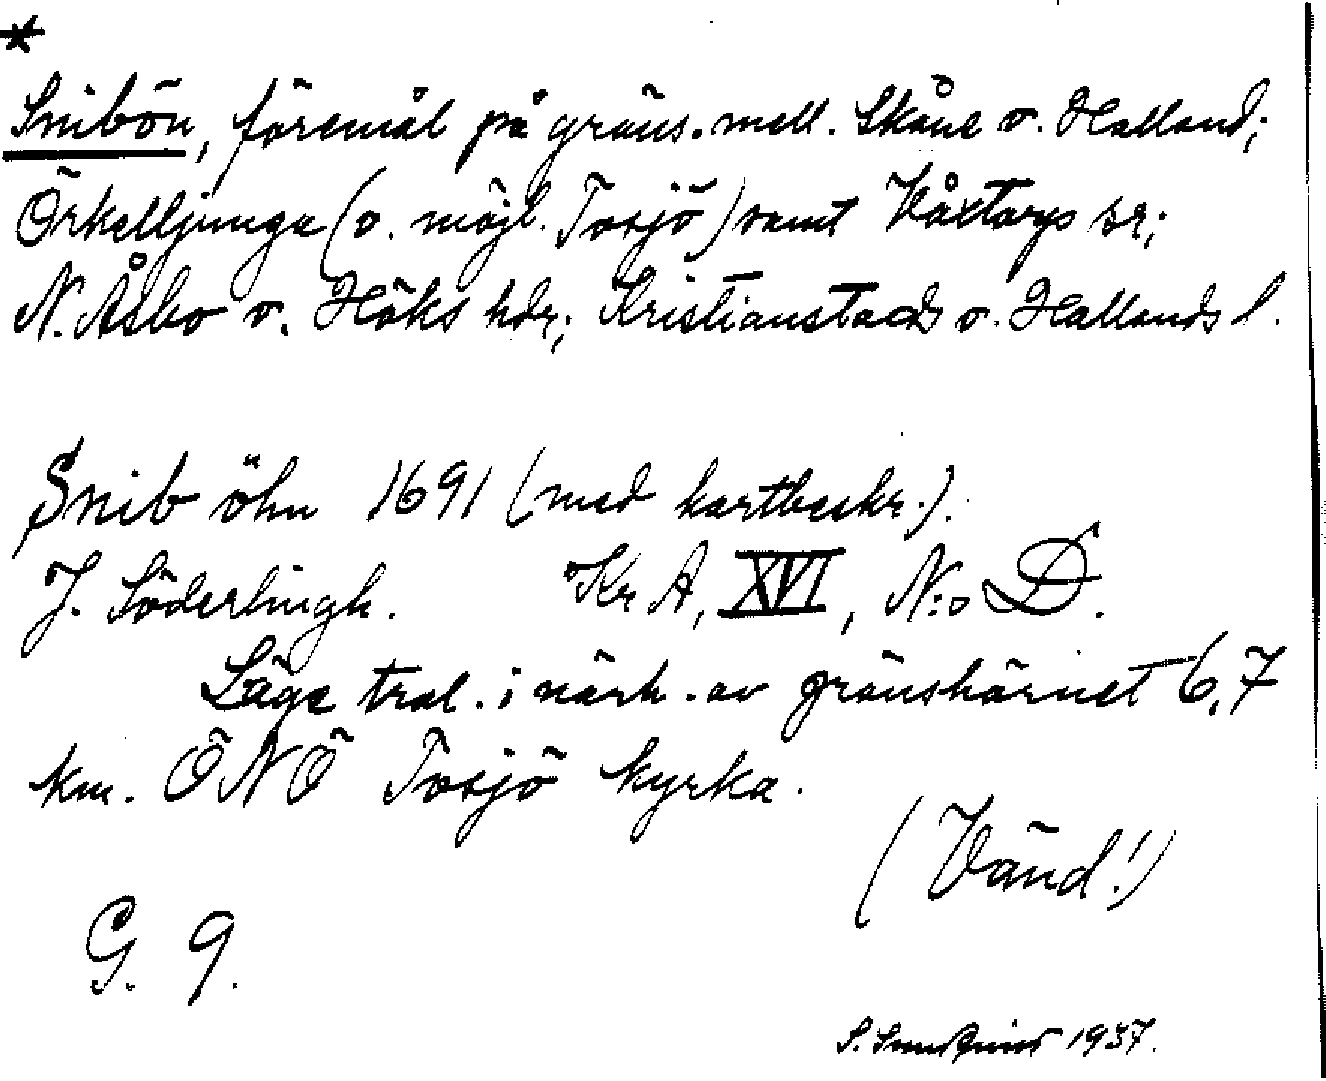 *
Snibön, föremål på gräns. mell. Skåne o. Halland;
Örkelljunga (o. möjl. Tosjö) samt Våxtorps sr;
N. Åsbo o. Höks hdr; Kristianstads o. Hallands l.
Snib öhn 1691 (med kartbeskr.).
J. Söderlingh. KrA, XVI, N:o D.
Läge trol. i närh. av gränshörnet 6,7
km. ÖNÖ Tosjö kyrka.
(Vänd!)
G. 9.
S. 1937.